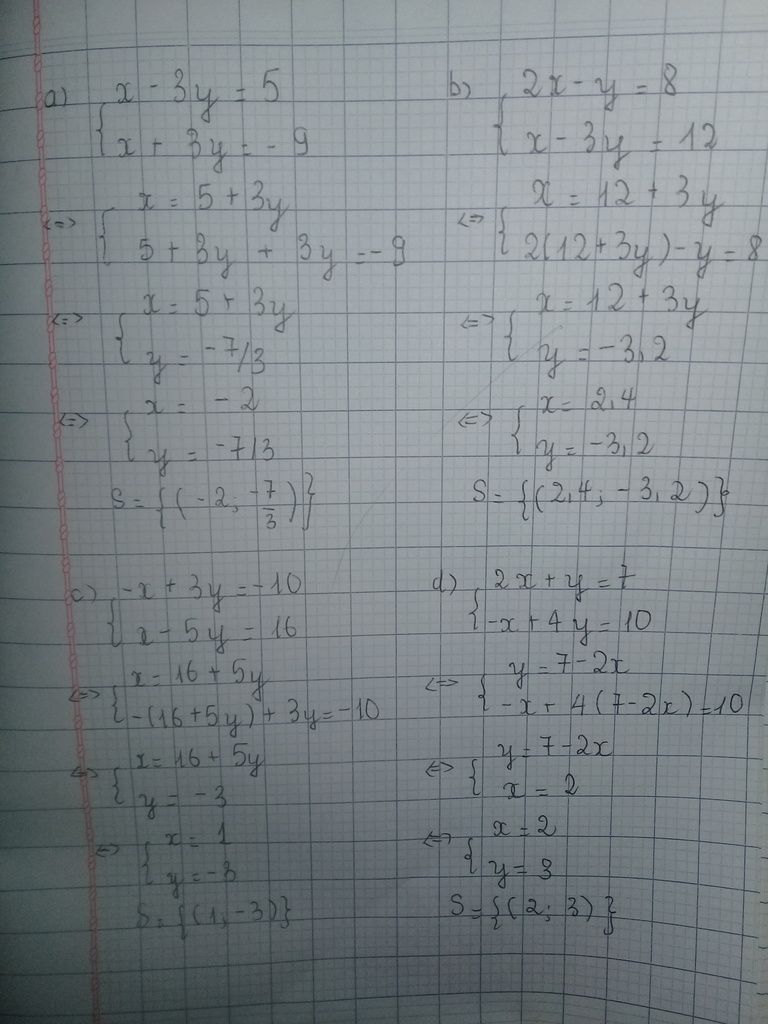 a) { x - 3y = 5
x + 3y = - 9
<=> { x = 5 + 3y
5 + 3y + 3y = - 9
<=> { x = 5 + 3y
y = -7/3
<=> { x = - 2
y = -7/3
S = {(-2; -7/3)}
b) { 2x - y = 8
x - 3y = 12
<=> { x = 12 + 3y
2(12+3y) - y = 8
<=> { x = 12 + 3y
y = -3,2
<=> { x = 2,4
y = -3,2
S = {(2,4; -3,2)}
c) { -x + 3y = -10
x - 5y = 16
<=> { x = 16 + 5y
-(16+5y) + 3y = -10
<=> { x = 16 + 5y
y = -3
<=> { x = 1
y = -3
S = {(1; -3)}
d) { 2x + y = 7
-x + 4y = 10
<=> { y = 7 - 2x
-x + 4(7-2x) = 10
<=> { y = 7 - 2x
x = 2
<=> { x = 2
y = 3
S = {(2; 3)}